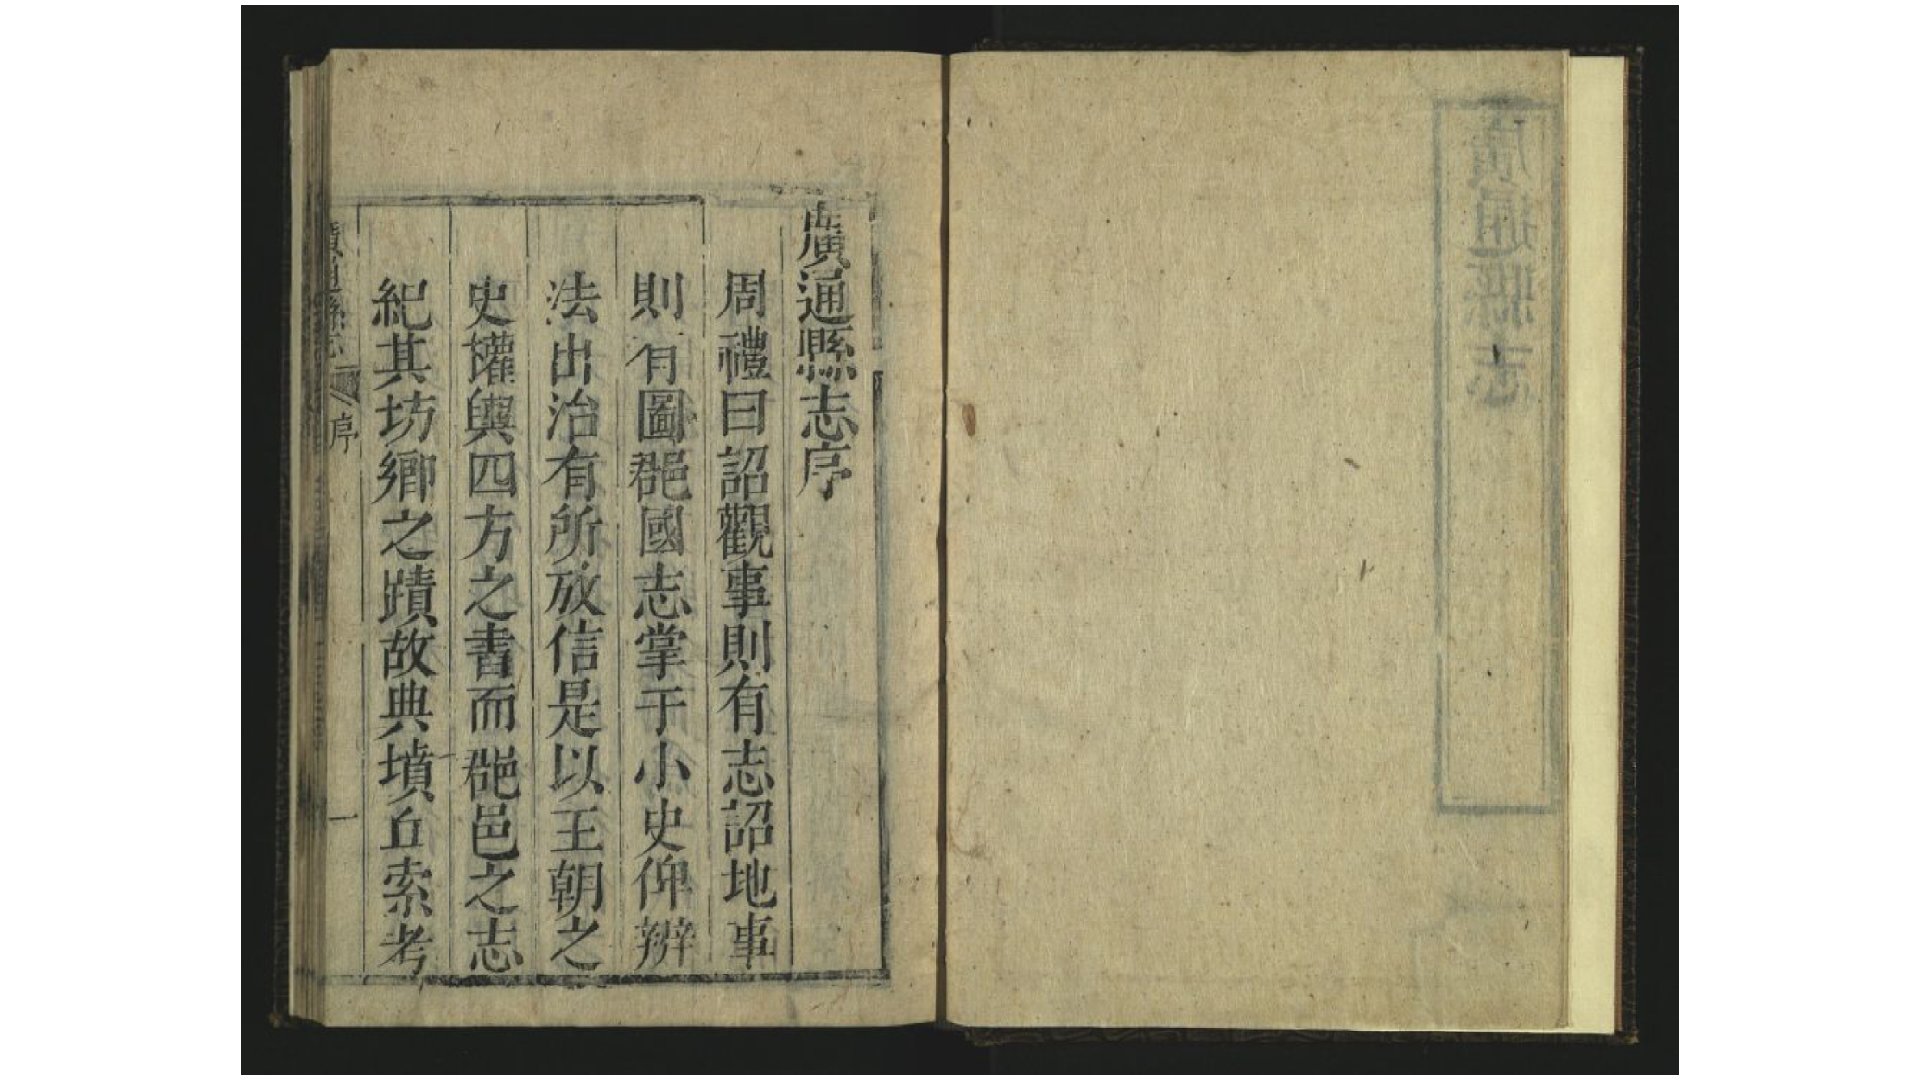 廣通縣志
廣通縣志序
周禮曰詔觀事則有志詔地事
則有圖郡國志掌于小史俾辨
法出治有所放信是以王朝之
史權輿四方之書而郡邑之志
紀其坊鄉之蹟故典墳丘索考
廣通縣志 序 一